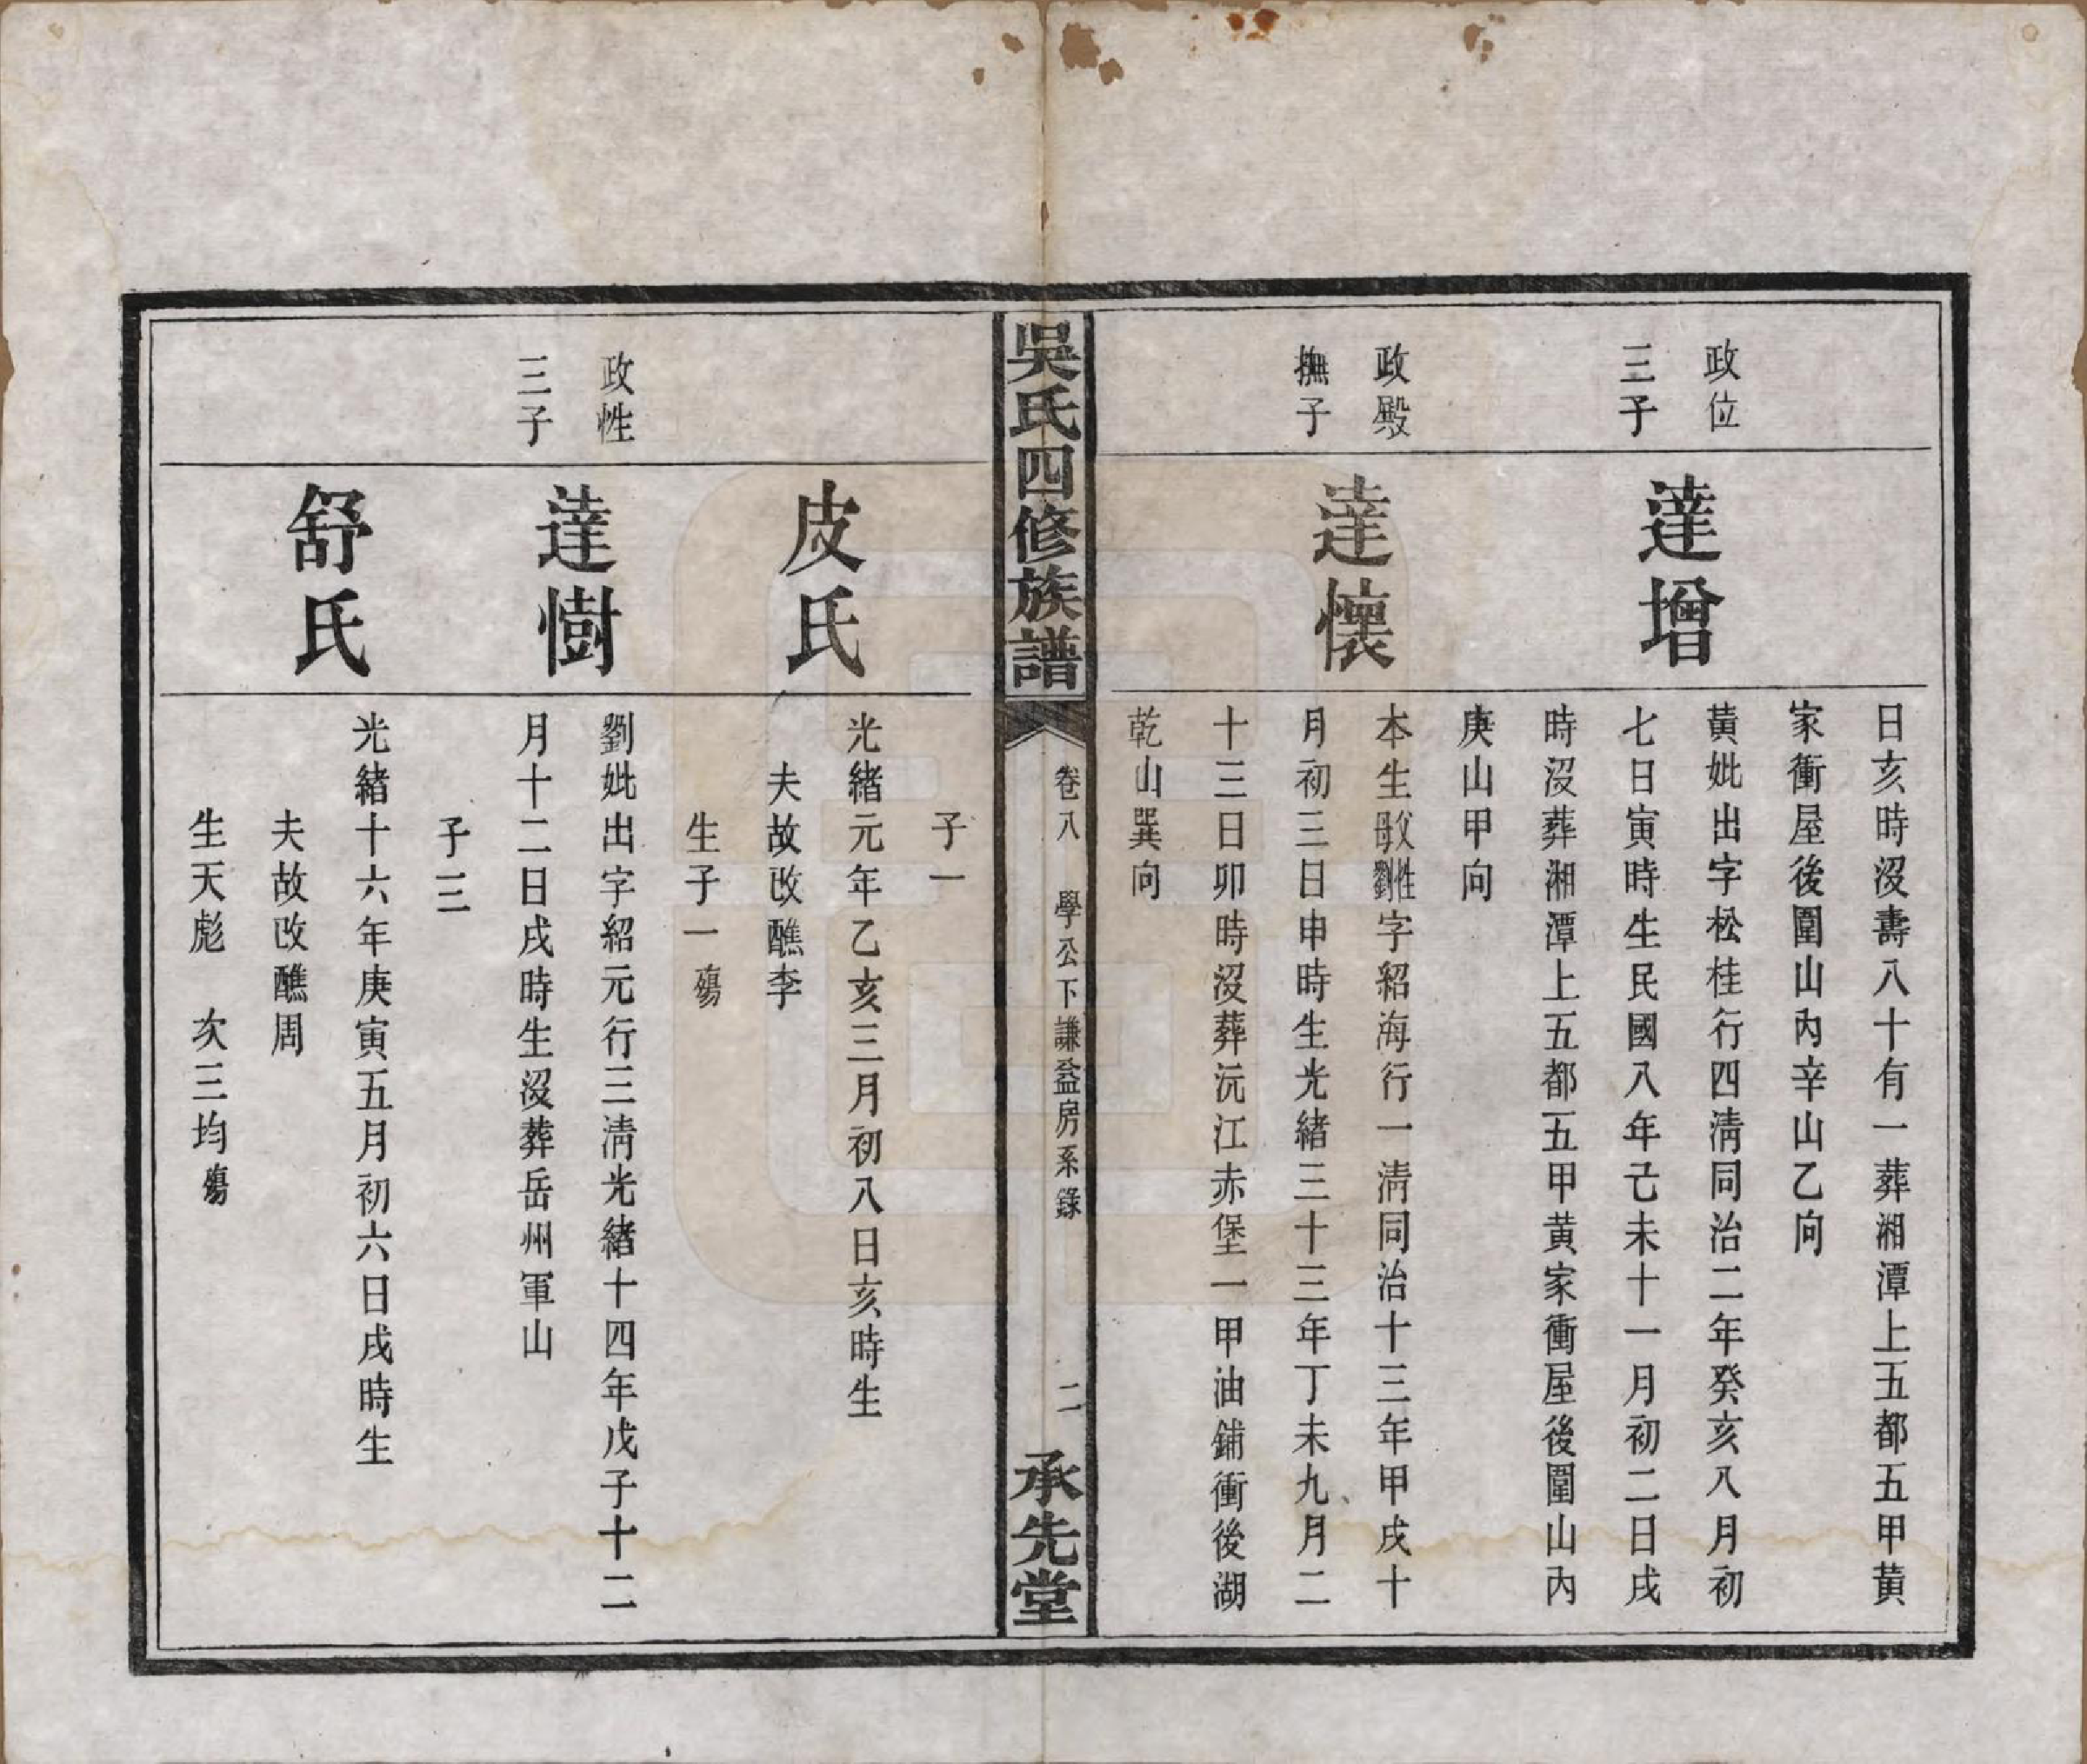 日亥時沒壽八十有一葬湘潭上五都五甲黃
家衝屋後圍山內辛山乙向
政位
三子
達增
黃妣出字松桂行四清同治二年癸亥八月初
七日寅時生民國八年己未十一月初二日戌
時沒葬湘潭上五都五甲黃家衝屋後圍山內
庚山甲向
政殿
撫子
達懷
本生父政性母劉字紹海行一清同治十三年甲戌十
月初三日申時生光緒三十三年丁未九月二
十三日卯時沒葬沅江赤堡一甲油鋪衝後湖
乾山巽向
吳氏四修族譜
卷八 學公下謙益房系錄
二
承先堂
子一
皮氏
光緒元年乙亥三月初八日亥時生
夫故改醮李
生子一殤
政性
三子
達樹
劉妣出字紹元行三清光緒十四年戊子十二
月十二日戌時生沒葬岳州軍山
子三
舒氏
光緒十六年庚寅五月初六日戌時生
夫故改醮周
生天彪 次三均殤